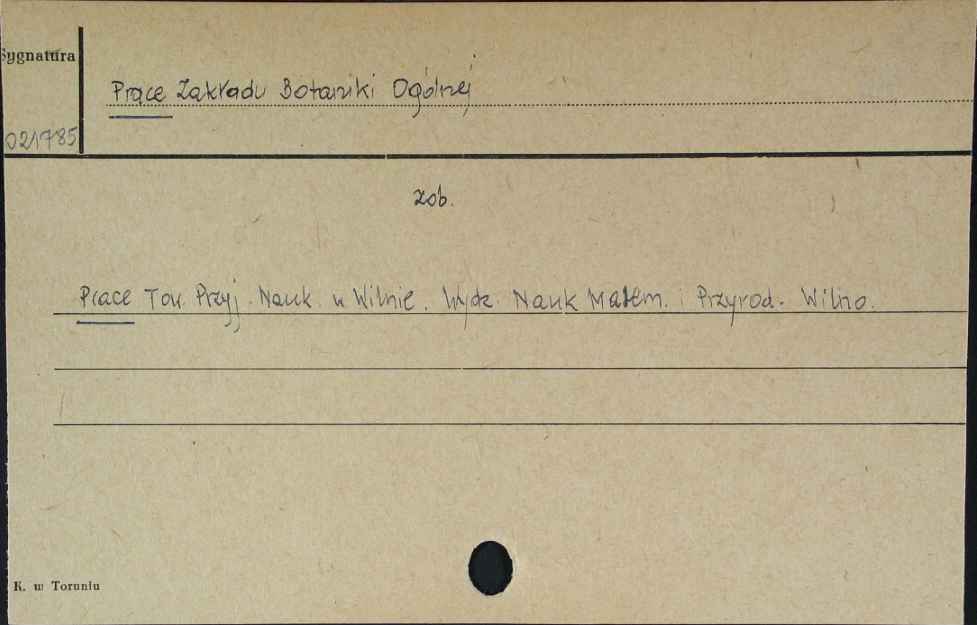 Sygnatura
Prace Zakładu Botaniki Ogólnej
021785
zob.
Prace Tow. Przyj. Nauk. w Wilnie. Wydz. Nauk Matem. i Przyrod. Wilno.
K. w Toruniu